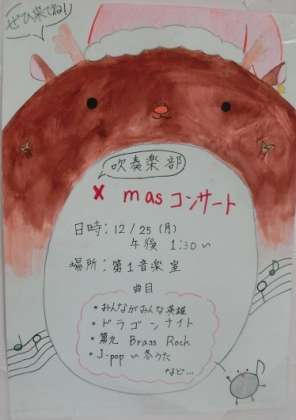 ぜひ来てね!
吹奏楽部
Xmasコンサート
日時:12/25(月)
午後 1:30~
場所:第1音楽室
曲目
・おんながおんな英雄
・ドラゴンナイト
・第九 Brass Rock
・J-popい冬うた
など…